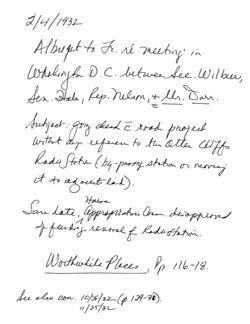 2/4/1932
Albright to Jr. re meeting in
Washington D.C. between Sec. Wilbur,
Sen. Hale, Rep. Nelson, & Mr. Dorr.
Subject: going ahead c̄ road project
without any reference to the Otter Cliffs
Radio Station (by-passing station or moving
it to adjacent land).
House
Same date, Appropriations Comm. disapproved
of funding removal for Radio Station.
Worthwhile Places, Pp 116-18.
See also corr. 10/5/32
11/25/32